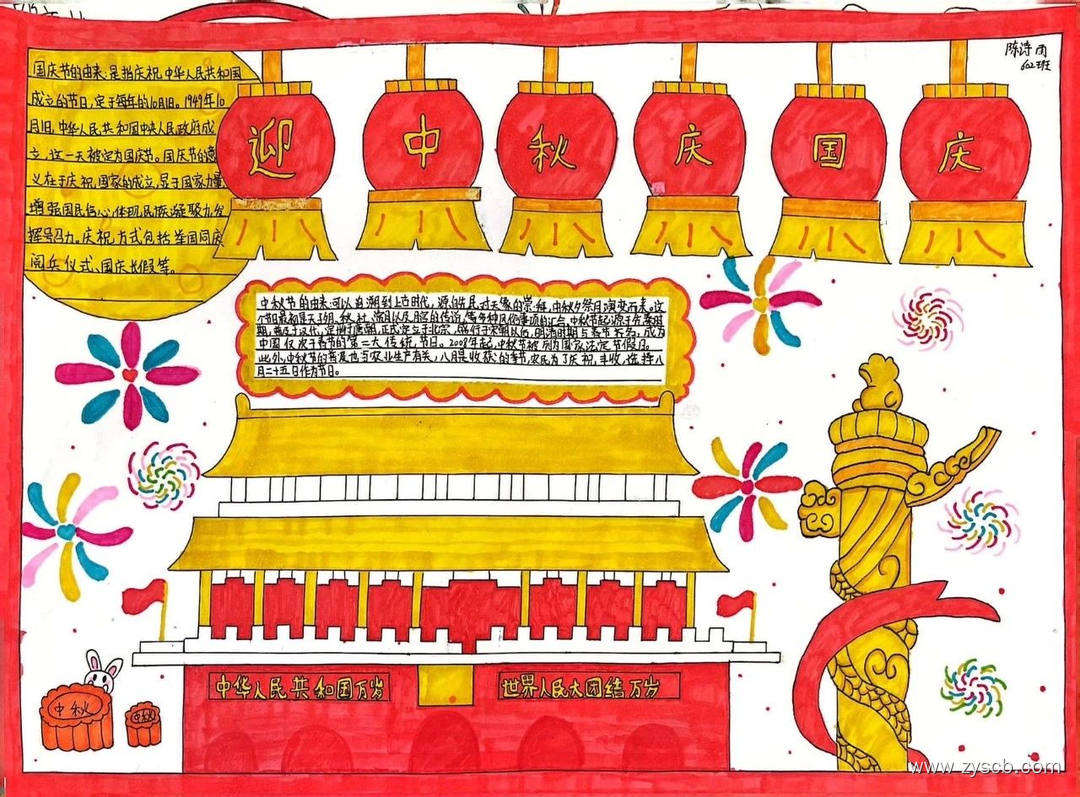 陈诗雨
602班
国庆节的由来,是指庆祝中华人民共和国
成立的节日,定于每年的10月1日。1949年10
月1日,中华人民共和国中央人民政府成
立,这一天被定为国庆节。国庆节的意
义在于庆祝,国家的成立,显于国家力量
增强国民信心,体现民族凝聚力,发
挥号召力。庆祝方式包括举国同庆
阅兵仪式、国庆长假等。
迎中秋庆国庆
中秋节的由来,可以追溯到上古时代,源自先民对天象的崇拜,由秋夕祭月演变而来。这
个节日最初是天子祭
期,普及于汉代,定型于唐朝,正式定立于北宋,盛行于宋朝以后,明清时期与春节齐名,成为
中国仅次于春节的第二大传统节日。2008年起,中秋节被列为国家法定节假日。
此外,中秋节的普及也与农业生产有关,八月是收获的季节,农民为了庆祝丰收,选择八
月二十五日作为节日。
中华人民共和国万岁
世界人民大团结万岁
中秋
中秋
www.zyscb.com